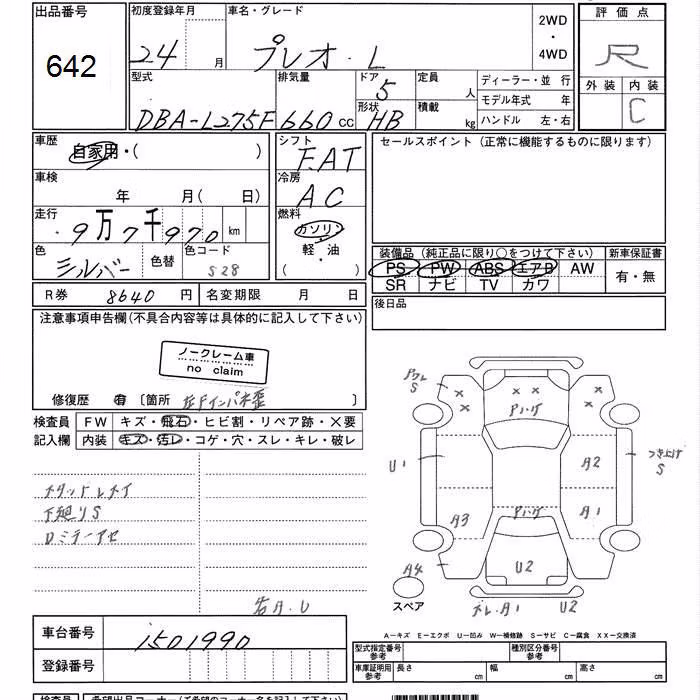 出品番号
642
初度登録年月
24 月
車名・グレード
プレオ・L
2WD
・
4WD
評価点
R
外装 内装
C
型式
DBA-L275F
排気量
660 cc
ドア
5
形状
HB
定員
人
積載
kg
ディーラー・並 行
モデル年式 年
ハンドル 左・右
車歴
自家用・( )
車検
年 月( 日)
走行
9万7千970 km
色
シルバー
色替
色コード
S28
シフト
F.AT
冷房
AC
燃料
ガソリン
・
軽・油
・
( )
セールスポイント (正常に機能するものに限ります)
装備品 (純正品に限り○をつけて下さい)
新車保証書
PS PW ABS エアB AW
SR ナビ TV カワ
有・無
R券 8640 円
名変期限 月 日
後日品
注意事項申告欄(不具合内容等は具体的に記入して下さい)
ノークレーム車
no claim
修復歴 有 〔箇所 左Fインパネ歪 〕
検査員
記入欄
FW キズ・飛石・ヒビ割・リペア跡・×要
内装 キズ・汚レ・コゲ・穴・スレ・キレ・破レ
スタッドレスイ
下廻りS
Dミラーアセ
若A.U
S
Pハゲ
U1
A2
つき上げ
S
A3
Pハゲ
A1
A4
U2
スペア
A1
U2
A-キズ E-エクボ U-凹み W-補修跡 S-サビ C-腐食 XX-交換済
車台番号
1501990
登録番号
型式指定番号
参考
種別区分番号
参考
車庫証明用
参考
長さ cm
幅 cm
高さ cm
検査員
希望出品コーナー(ご希望のコーナー名がございま